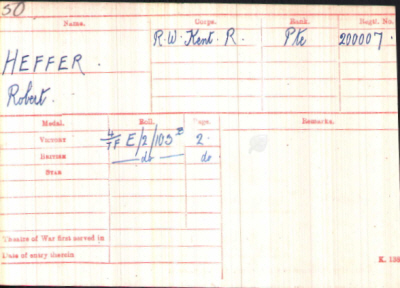 SO
Name. Corps. Rank. Regtl. No.
R.W. Kent. R. Pte 200007.
HEFFER.
Robert.
Medal. Roll. Page. Remarks.
VICTORY 4/TF E/2/103 B 2.
BRITISH —do— do
STAR
Theatre of War first served in
Date of entry therein
K. 139